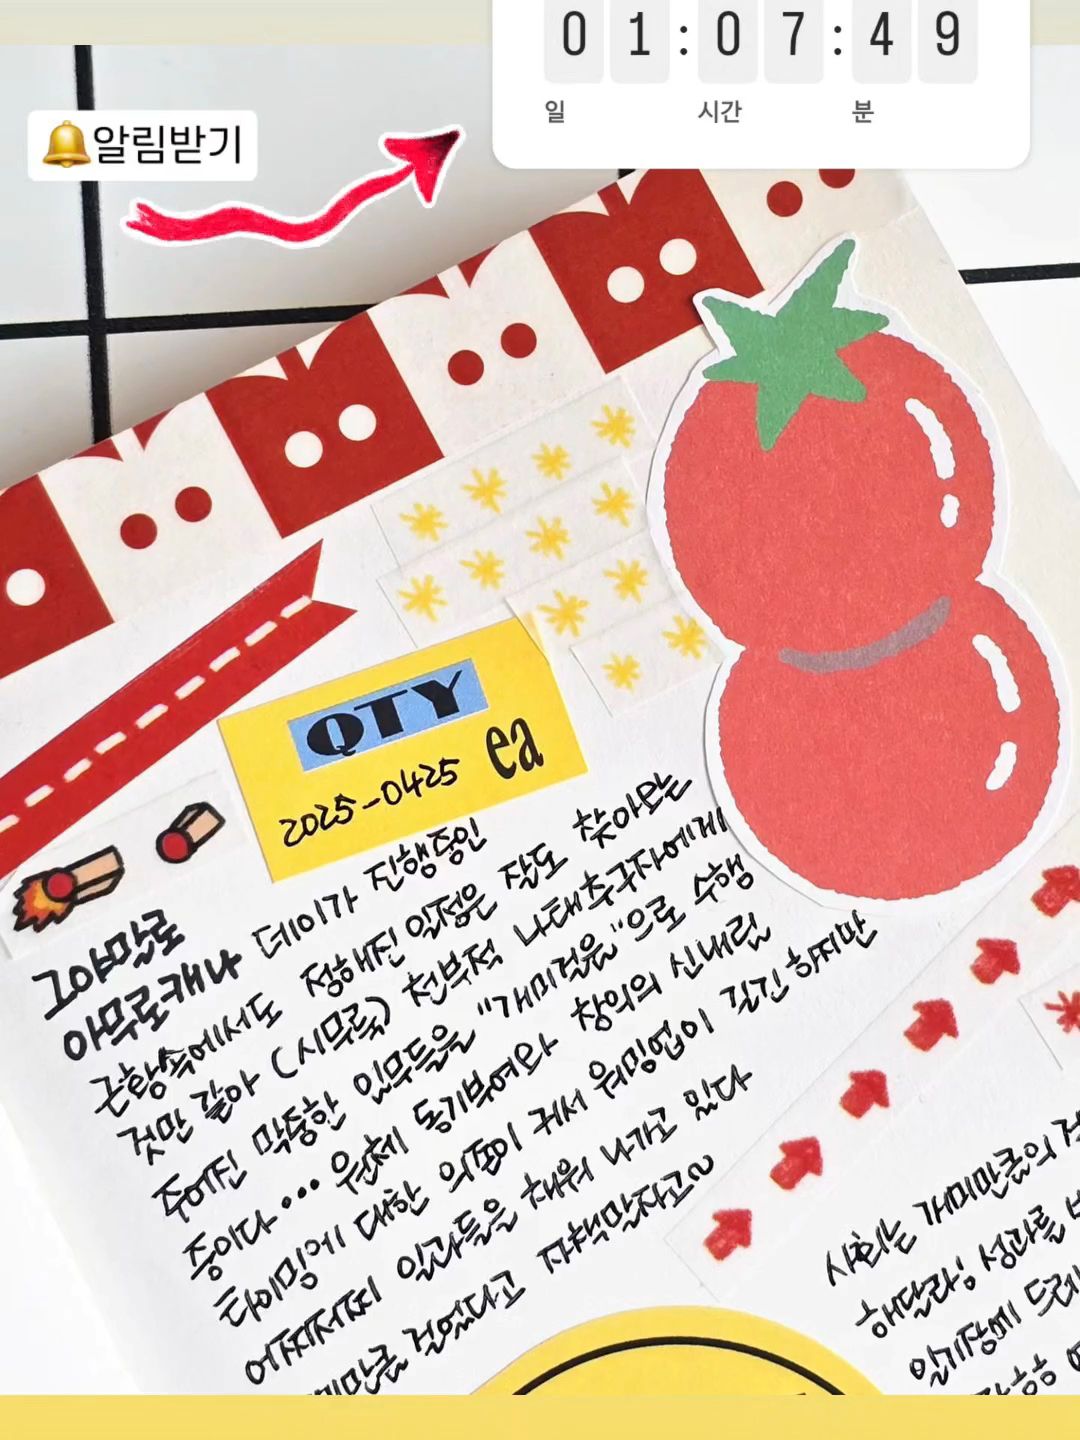 01:07:49
일 시간 분
🔔알림받기
QTY
ea
2025-0425
그야말로
아무로캐나 데이가 진행중인
근황속에서도 정해진 일정은 잘도 찾아오는
것만 같아 (시무룩) 천부적 나태추구자에게
주어진 막중한 임무들을 "개미걸음"으로 수행
중이다... 원체 동기부여와 창의의 신내림
타이밍에 대한 의존이 커서 워밍업이 길긴 하지만
어찌저찌 일과들을 채워 나가고 있다
개미만큼 걸었다고 자책말자고~
사회는 개미만큼의
해달라; 성과를
일기장에